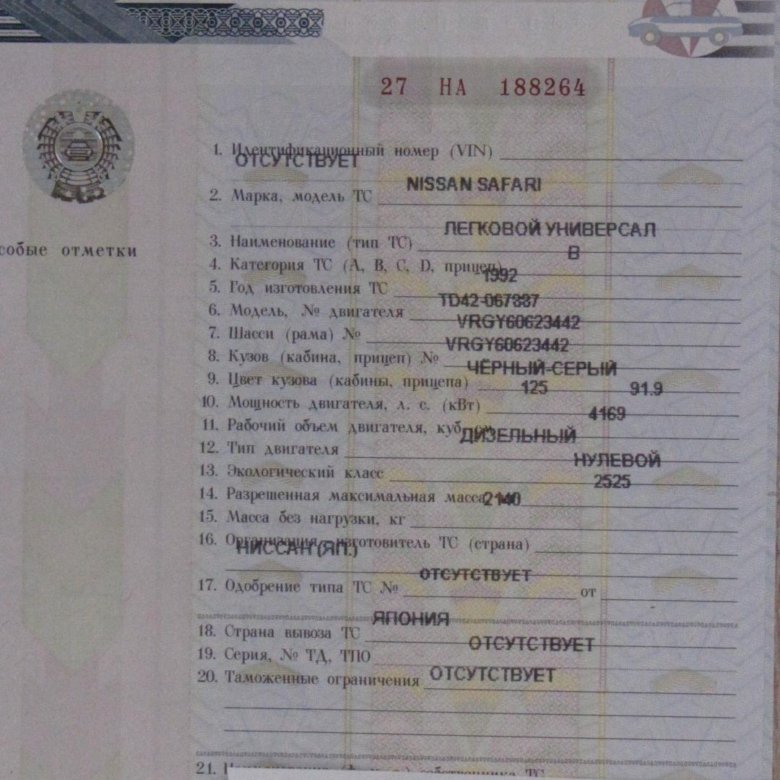 27 НА 188264
1. Идентификационный номер (VIN)
ОТСУТСТВУЕТ
NISSAN SAFARI
2. Марка, модель ТС
ЛЕГКОВОЙ УНИВЕРСАЛ
3. Наименование (тип ТС)
B
4. Категория ТС (А, В, С, D, прицеп)
1992
5. Год изготовления ТС
TD42-067887
6. Модель, № двигателя
VRGY60623442
7. Шасси (рама) №
VRGY60623442
8. Кузов (кабина, прицеп) №
ЧЁРНЫЙ-СЕРЫЙ
9. Цвет кузова (кабины, прицепа)
125 91.9
10. Мощность двигателя, л. с. (кВт)
4169
11. Рабочий объем двигателя, куб. см
ДИЗЕЛЬНЫЙ
12. Тип двигателя
НУЛЕВОЙ
13. Экологический класс
2525
14. Разрешенная максимальная масса, кг
2140
15. Масса без нагрузки, кг
16. Организация - изготовитель ТС (страна)
НИССАН (ЯП.)
ОТСУТСТВУЕТ
17. Одобрение типа ТС № от
ЯПОНИЯ
18. Страна вывоза ТС
ОТСУТСТВУЕТ
19. Серия, № ТД, ТПО
20. Таможенные ограничения ОТСУТСТВУЕТ
21.
особые отметки